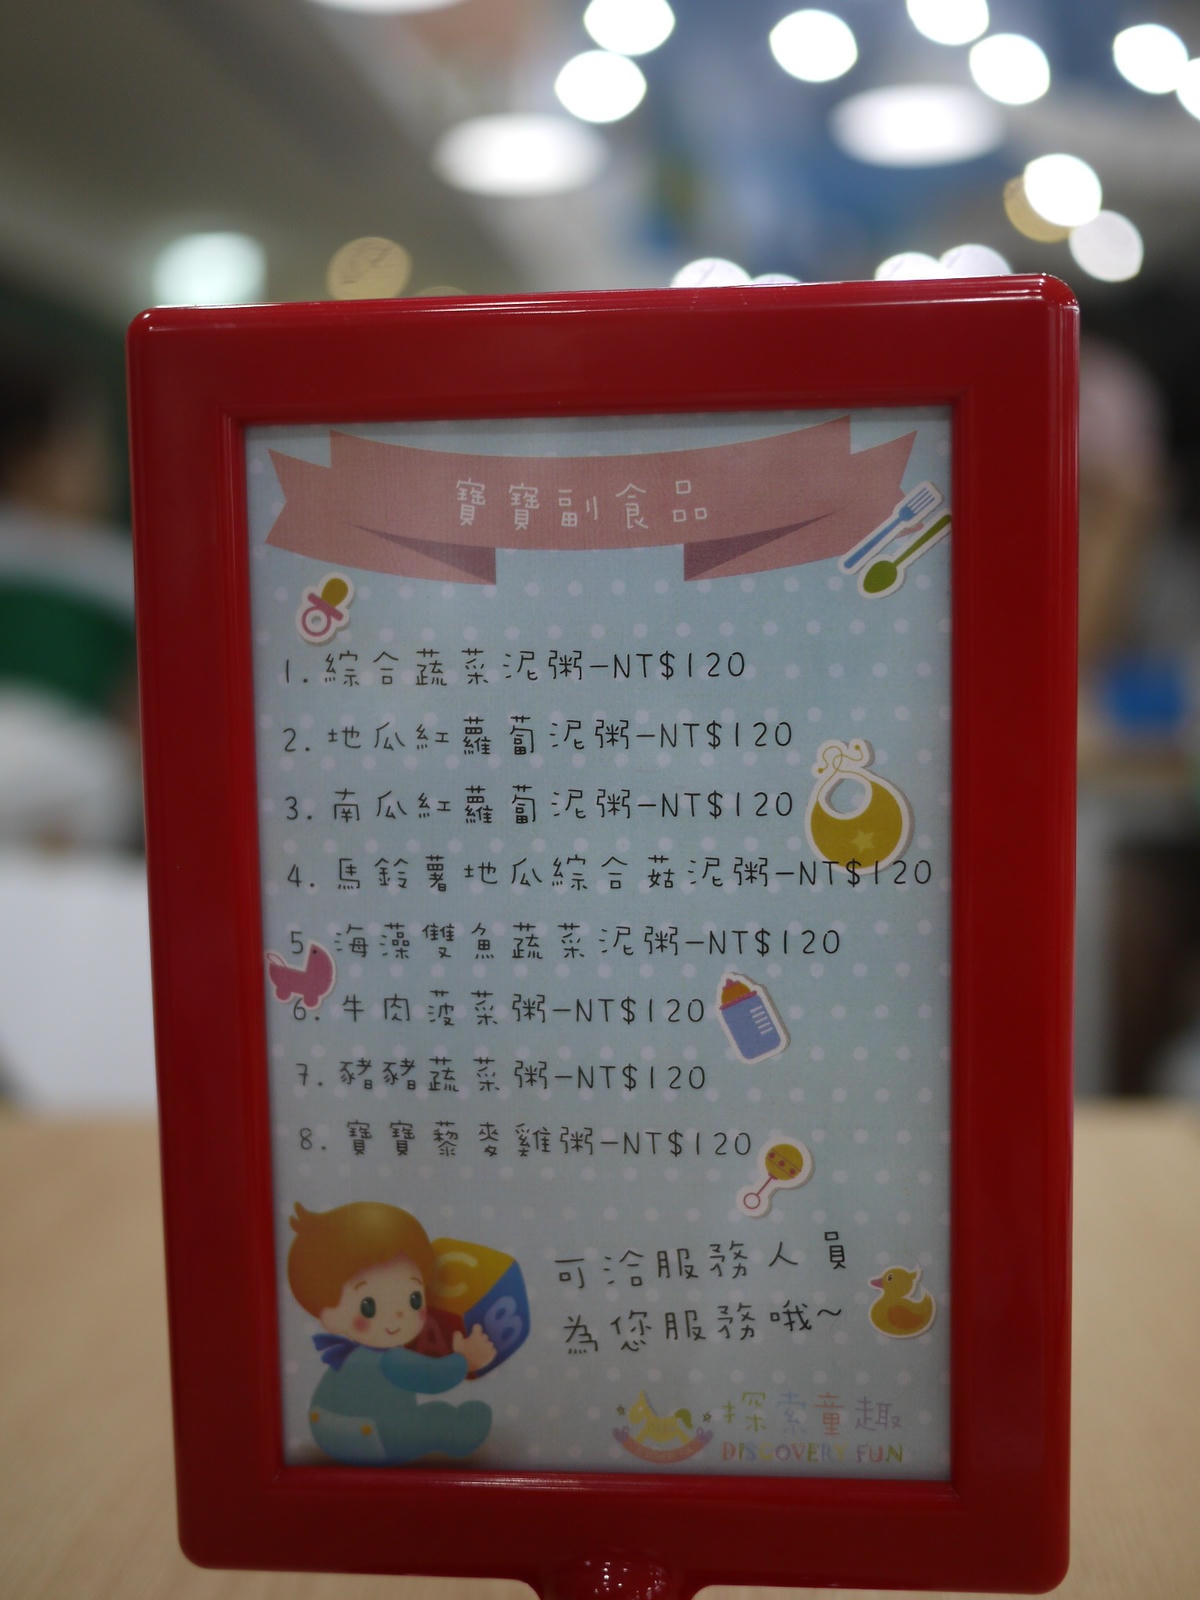 寶寶副食品
1. 綜合蔬菜泥粥-NT$120
2. 地瓜紅蘿蔔泥粥-NT$120
3. 南瓜紅蘿蔔泥粥-NT$120
4. 馬鈴薯地瓜綜合菇泥粥-NT$120
5. 海藻雙魚蔬菜泥粥-NT$120
6. 牛肉菠菜粥-NT$120
7. 豬豬蔬菜粥-NT$120
8. 寶寶藜麥雞粥-NT$120
可洽服務人員
為您服務哦~
探索童趣
DISCOVERY FUN